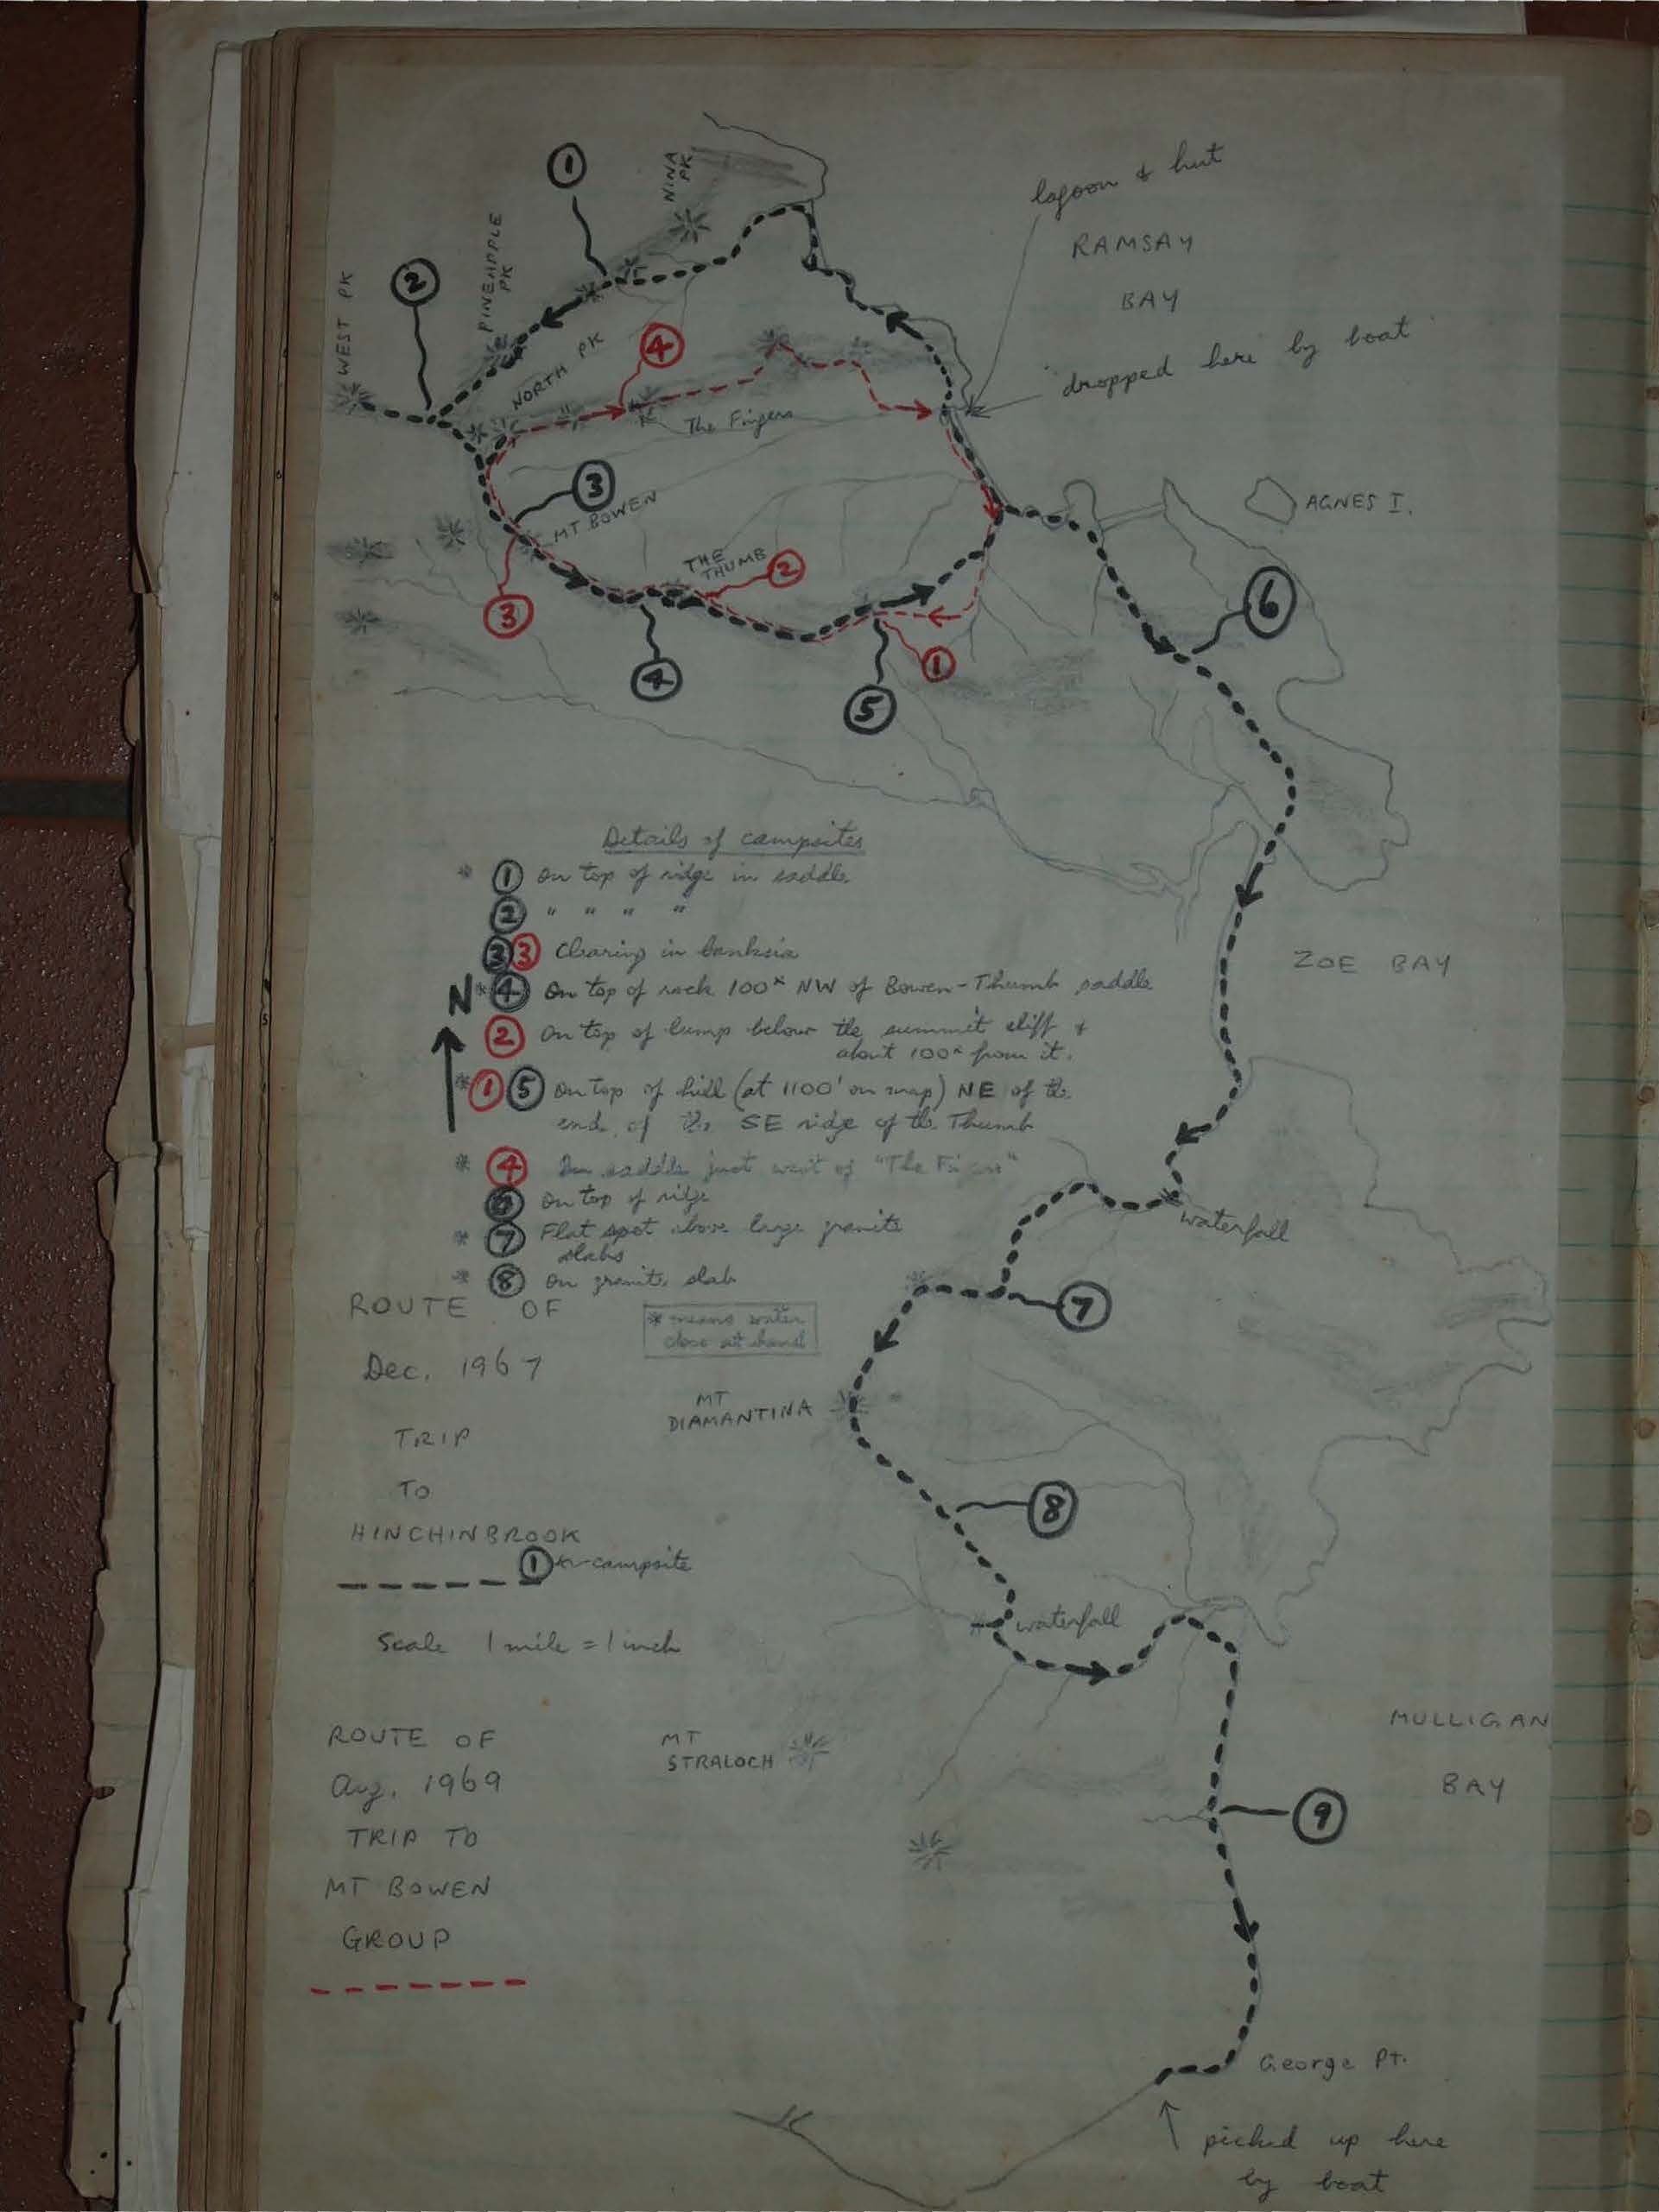 1
NINA
PK
lagoon & hut
RAMSAY
BAY
PINEAPPLE
PK
2
WEST PK
NORTH PK
4
dropped here by boat
The Fingers
3
MT BOWEN
AGNES I.
THE
THUMB
2
3
6
4
1
5
Details of campsites
* 1 On top of ridge in saddle
2 " " " "
3 3 Clearing in banksia
N * 4 On top of rock 100x NW of Bowen-Thumb saddle
2 On top of lump below the summit cliff &
about 100x from it.
* 1 5 On top of hill (at 1100' on map) NE of the
end of the SE ridge of the Thumb
* 4 In saddle just west of "The Fingers"
6 On top of ridge
* 7 Flat spot above large granite
slabs
* 8 On granite slab
* means water
close at hand
ZOE BAY
waterfall
7
ROUTE OF
Dec. 1967
TRIP
TO
HINCHINBROOK
1 ← campsite
Scale 1 mile = 1 inch
MT
DIAMANTINA
8
waterfall
ROUTE OF
Aug. 1969
TRIP TO
MT BOWEN
GROUP
MT
STRALOCH
MULLIGAN
BAY
9
George Pt.
picked up here
by boat